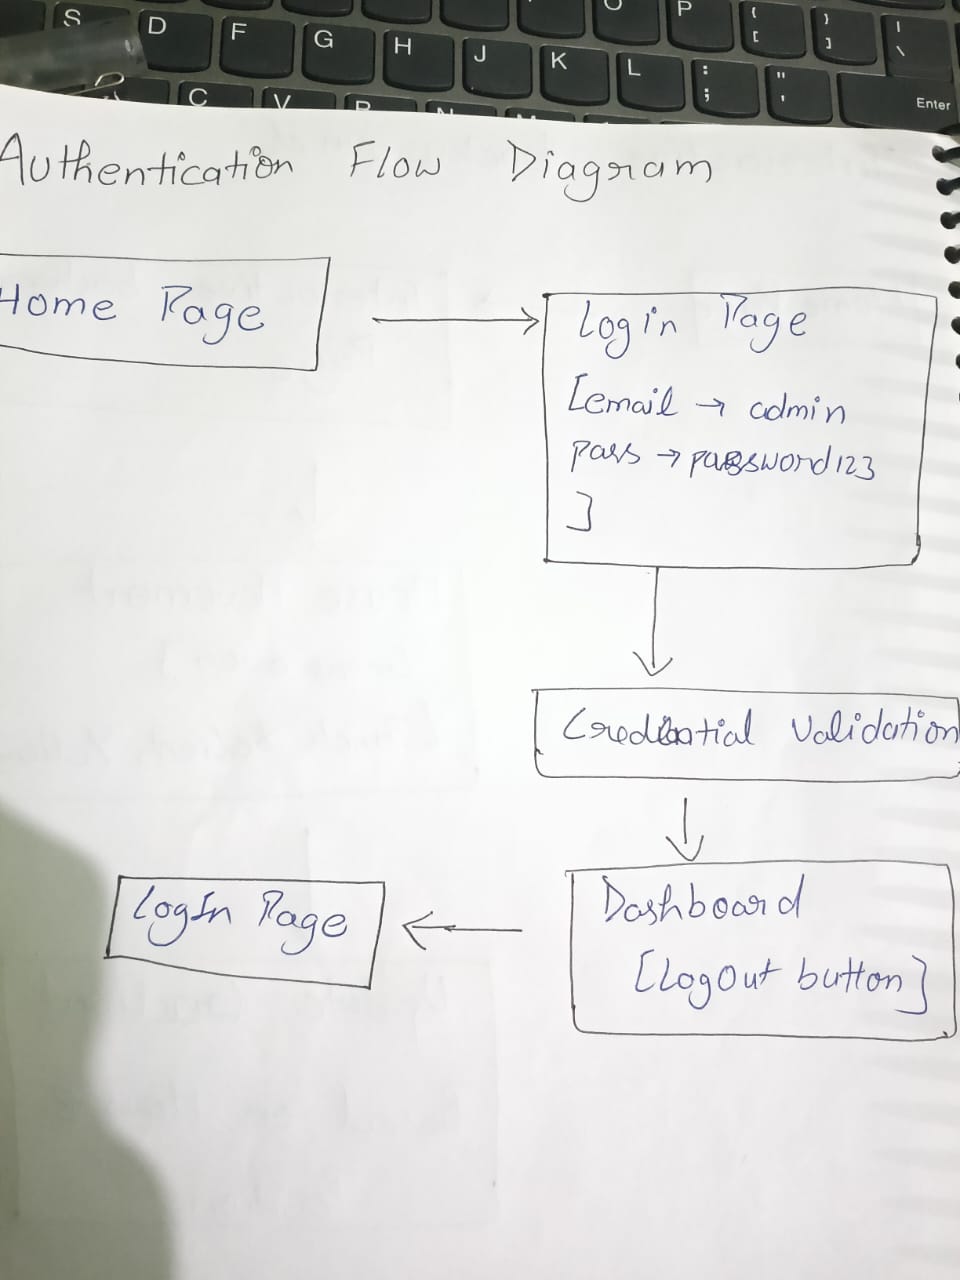 S D F G H J K L O P { [ } ] | \ : ; " ' Enter
C V
Authentication Flow Diagram
Home Page
Login Page
[email → admin
pass → password123
]
Credential Validation
Dashboard
[LogOut button]
LogIn Page